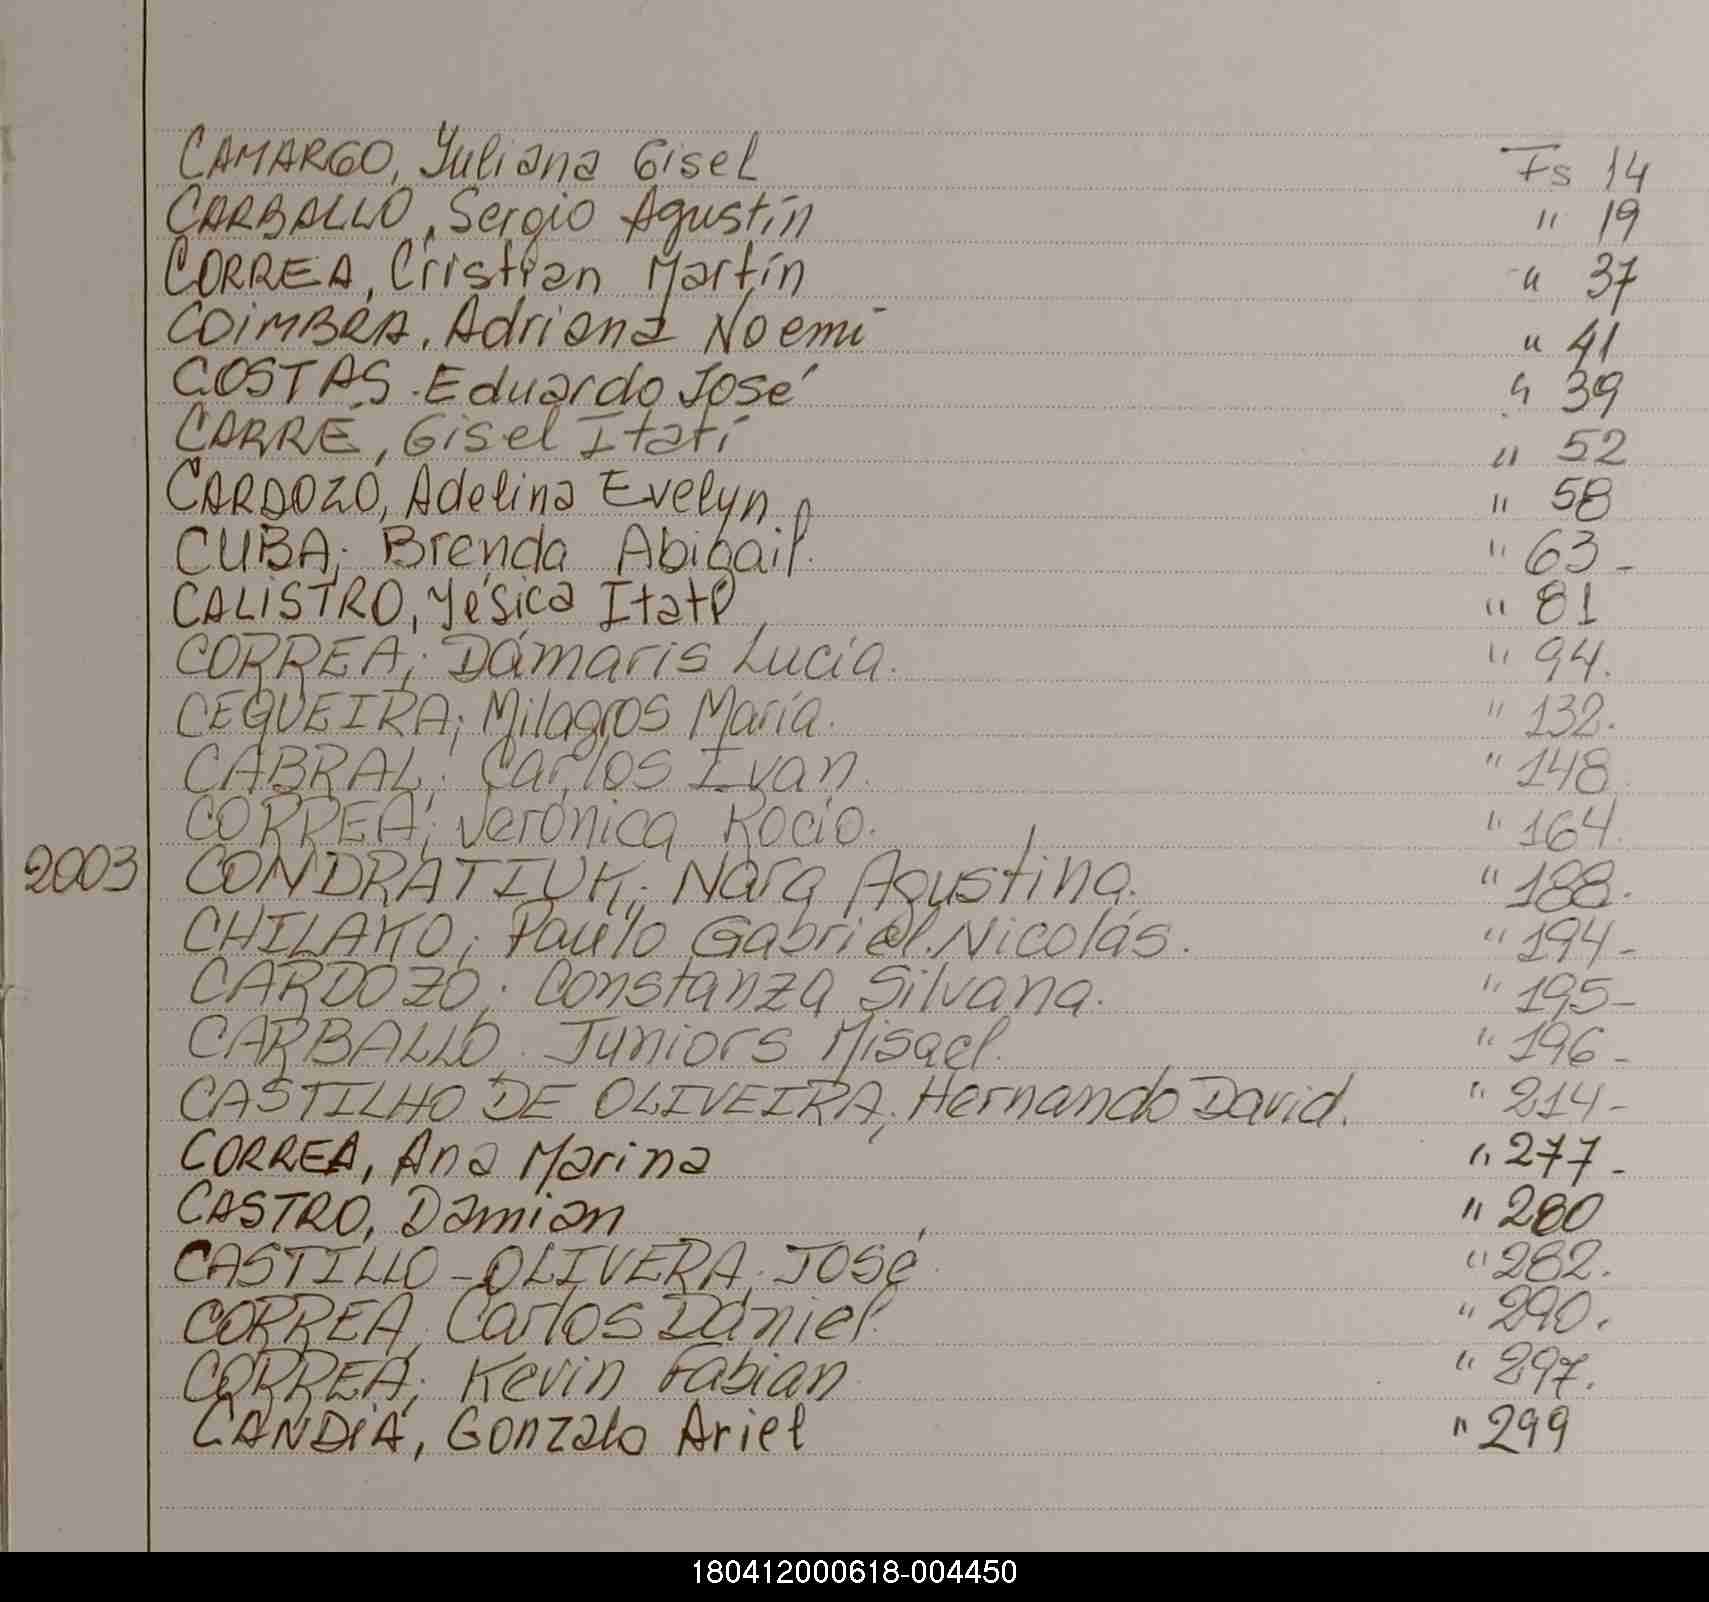 CAMARGO, Yuliana Gisel Fs 14
CARBALLO, Sergio Agustín " 19
CORREA, Cristian Martín " 37
COIMBRA, Adriana Noemí " 41
COSTAS. Eduardo José " 39
CARRÉ, Gisel Itatí " 52
CARDOZO, Adelina Evelyn " 58
CUBA; Brenda Abigail. " 63-
CALISTRO, Yésica Itatí " 81
CORREA; Dámaris Lucía. " 94.
CEQUEIRA; Milagros María. " 132.
CABRAL; Carlos Ivan. " 148.
CORREA; Verónica Rocío. " 164.
2003 CONDRATIUK; Nara Agustina. " 188.
CHILAKO; Paulo Gabriel Nicolás. " 194-
CARDOZO; Constanza Silvana. " 195-
CARBALLO. Juniors Misael. " 196-
CASTILHO DE OLIVEIRA; Hernando David. " 214-
CORREA, Ana Marina " 277-
CASTRO, Damian " 280
CASTILLO-OLIVERA; José " 282.
CORREA; Carlos Daniel. " 290.
CORREA; Kevin Fabian. " 297.
CANDIA, Gonzalo Ariel " 299
180412000618-004450